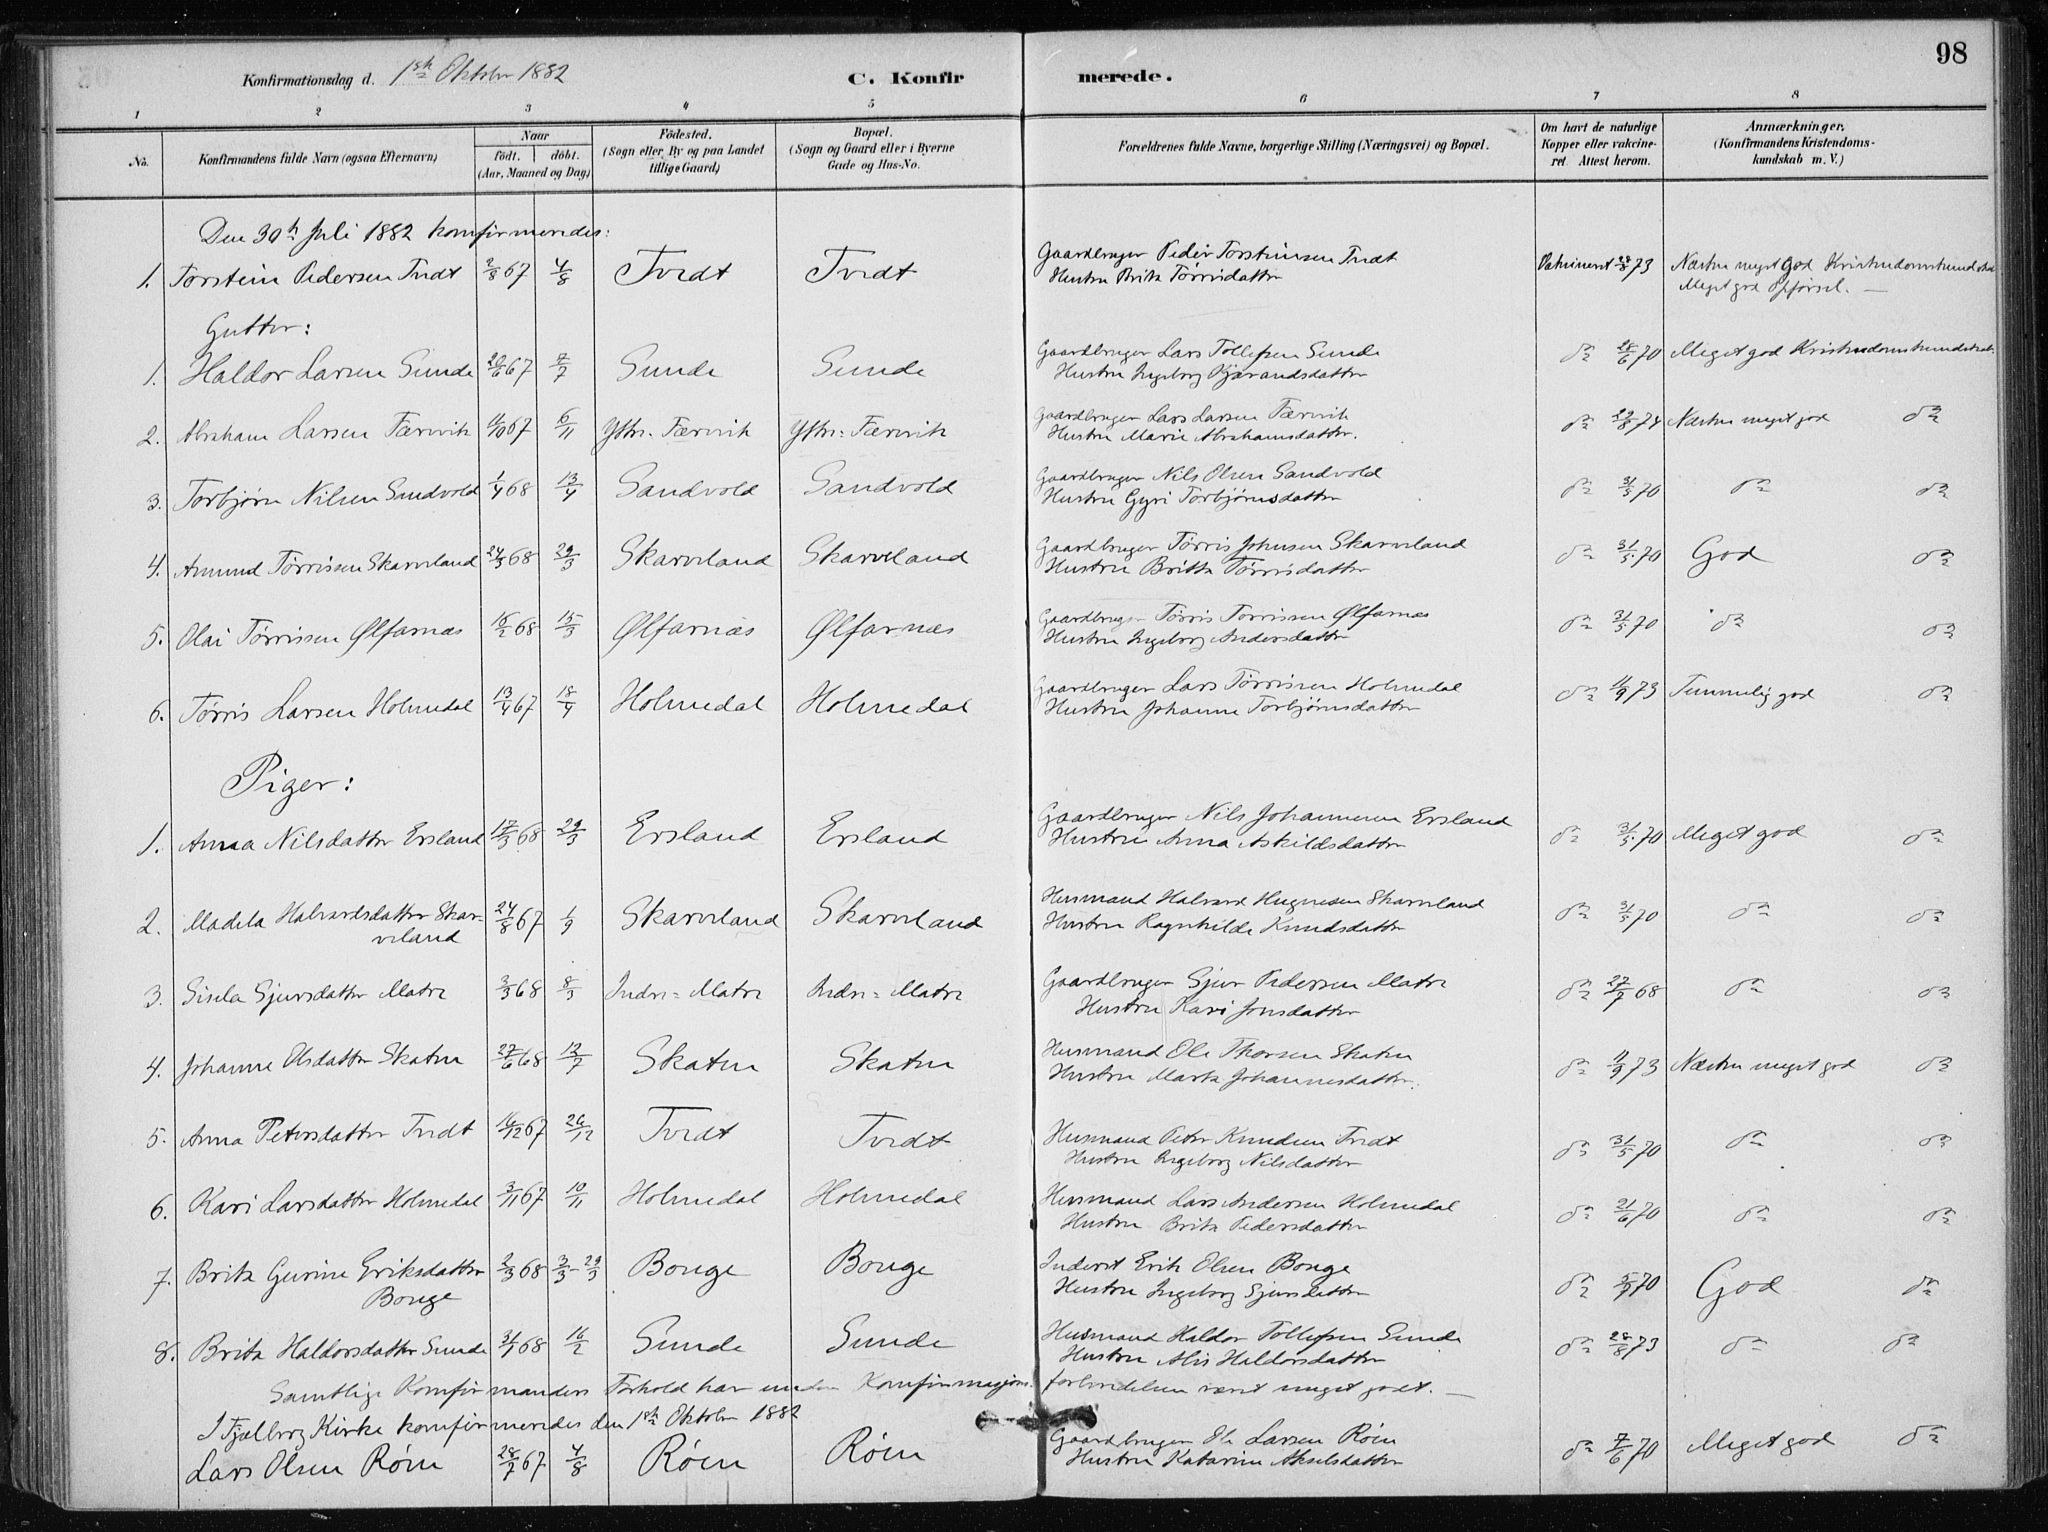 98
Konfirmationsdag d. 1ste Oktober 1882 C. Konfirmerede.
1 2 3 4 5 6 7 8
No. Konfirmandens fulde Navn (ogsaa Efternavn) Naar födt. döbt. (Aar, Maaned og Dag) Födested. (Sogn eller By og paa Landet tillige Gaard) Bopæl. (Sogn og Gaard eller i Byerne Gade og Hus-No. Forældrenes fulde Navne, borgerlige Stilling (Næringsvei) og Bopæl. Om havt de naturlige Kopper eller vakcineret. Attest herom. Anmærkninger. (Konfirmandens Kristendomskundskab m. V.)
Den 30te Juli 1882 konfirmeredes:
1. Torstein Pedersen Tvedt 2/8 67 4/8 Tvedt Tvedt Gaardbruger Peder Torsteinsen Tvedt Vakcineret 28/8 73 Næsten meget god Kristendomskundskab
Hustru Brita Tørrisdatter Meget god Opførsel. —
Gutter:
1. Haldor Larsen Sunde 20/6 67 7/7 Sunde Sunde Gaardbruger Lars Tollefsen Sunde do 28/6 70 Meget god Kristendomskundskab
Hustru Ingeborg Kjærandsdatter
2. Abraham Larsen Færevik 11/10 67 6/11 Ytre-Færevik Ytre-Færevik Gaardbruger Lars Larsen Færevik do 29/8 74 Næsten meget god do
Hustru Marie Abrahamsdatter.
3. Torbjørn Nilsen Sandvold 1/4 68 13/4 Sandvold Sandvold Gaardbruger Nils Olsen Sandvold do 31/5 70 do do
Hustru Gyri Torbjørnsdatter
4. Amund Tørrissen Skarveland 24/3 68 29/3 Skarveland Skarveland Gaardbruger Tørris Johnsen Skarveland do 31/5 70 God do
Hustru Britta Tørrisdatter
5. Olai Tørrissen Ølfarnæs 16/2 68 15/3 Ølfarnæs Ølfarnæs Gaardbruger Tørris Tørrissen Ølfarnæs do 31/5 70 do do
Hustru Ingeborg Andersdatter
6. Tørris Larsen Holmedal 13/4 67 18/4 Holmedal Holmedal Gaardbruger Lars Tørrissen Holmedal do 11/9 73 Temmelig god do
Hustru Johanne Torbjørnsdatter
Piger:
1. Anna Nilsdatter Ersland 17/3 68 29/3 Ersland Ersland Gaardbruger Nils Johannesen Ersland do 31/5 70 Meget god do
Hustru Anna Askildsdatter
2. Madela Halvardsdatter Skar- 24/8 67 1/9 Skarveland Skarveland Husmand Halvard Hugnesen Skarveland do 31/5 70 do do
veland Hustru Ragnhilde Knudsdatter
3. Sisela Sjursdatter Matre 2/3 68 8/3 Indre-Matre Indre-Matre Gaardbruger Sjur Pedersen Matre do 27/7 68 do do
Hustru Kari Jonsdatter
4. Johanne Olsdatter Skaten 27/6 68 12/7 Skaten Skaten Husmand Ole Thorsen Skaten do 11/9 73 Næsten meget god do
Hustru Marta Johannesdatter.
5. Anna Petersdatter Tvedt 16/12 67 26/12 Tvedt Tvedt Husmand Peter Knudsen Tvedt do 31/5 70 do do
Hustru Ingeborg Nilsdatter
6. Kari Larsdatter Holmedal 3/11 67 10/11 Holmedal Holmedal Husmand Lars Andersen Holmedal do 21/6 70 do do
Hustru Brita Pedersdatter
7. Brita Gurine Eriksdatter 2/3 68 3/3-29/3 Bouge Bouge Inderst Erik Olsen Bouge do 5/7 70 God do
Bouge Hustru Ingeborg Sjursdatter
8. Brita Haldorsdatter Sunde 31/1 68 16/2 Sunde Sunde Husmand Haldor Tollefsen Sunde do 28/8 73 do do
Hustru Alis Haldorsdatter
Samtlige Konfirmanders Forhold har under Konfirmasjonsforberedelsen været meget godt. —
I Fjælberg Kirke konfirmeredes den 1ste Oktober 1882
Lars Olsen Røen 28/7 67 4/8 Røen Røen Gaardbruger Ole Larsen Røen do 7/6 70 Meget god do
Hustru Katarine Akselsdatter